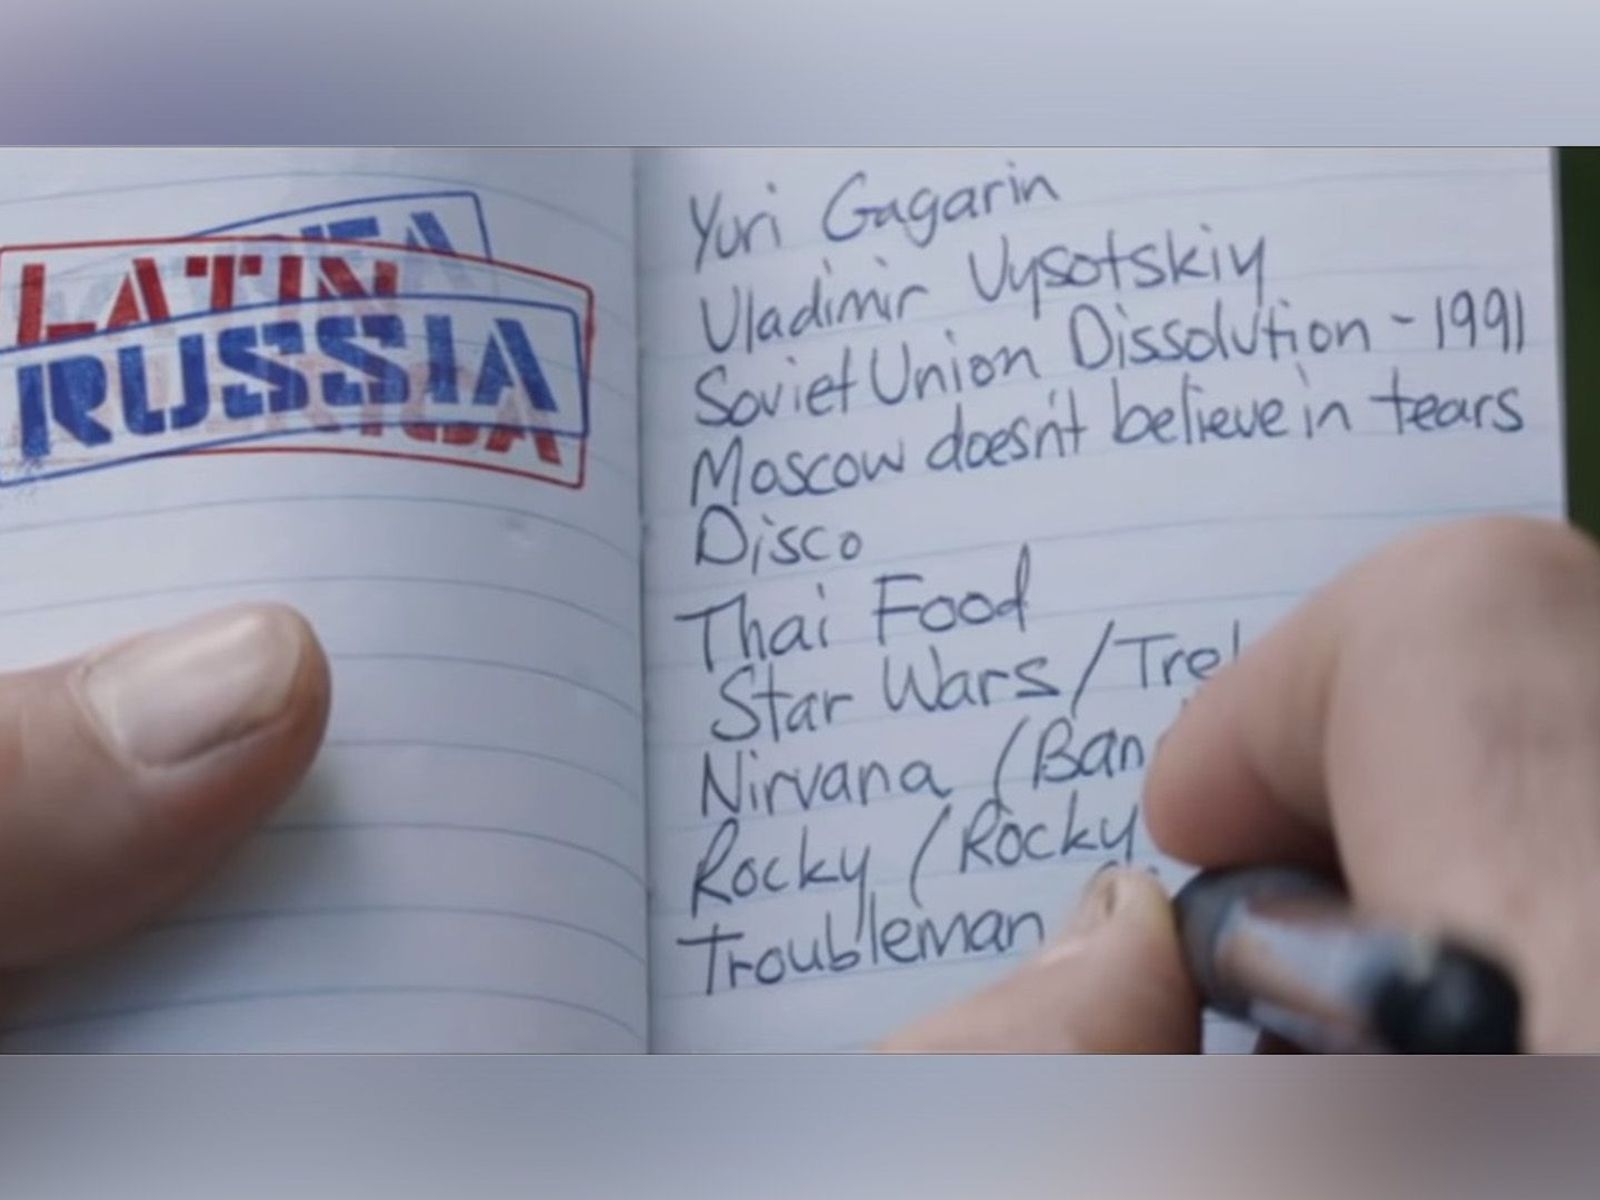 LATIN
RUSSIA
Yuri Gagarin
Vladimir Vysotskiy
Soviet Union Dissolution - 1991
Moscow doesn't believe in tears
Disco
Thai Food
Star Wars /
Nirvana (
Rocky (Rocky
Troubleman